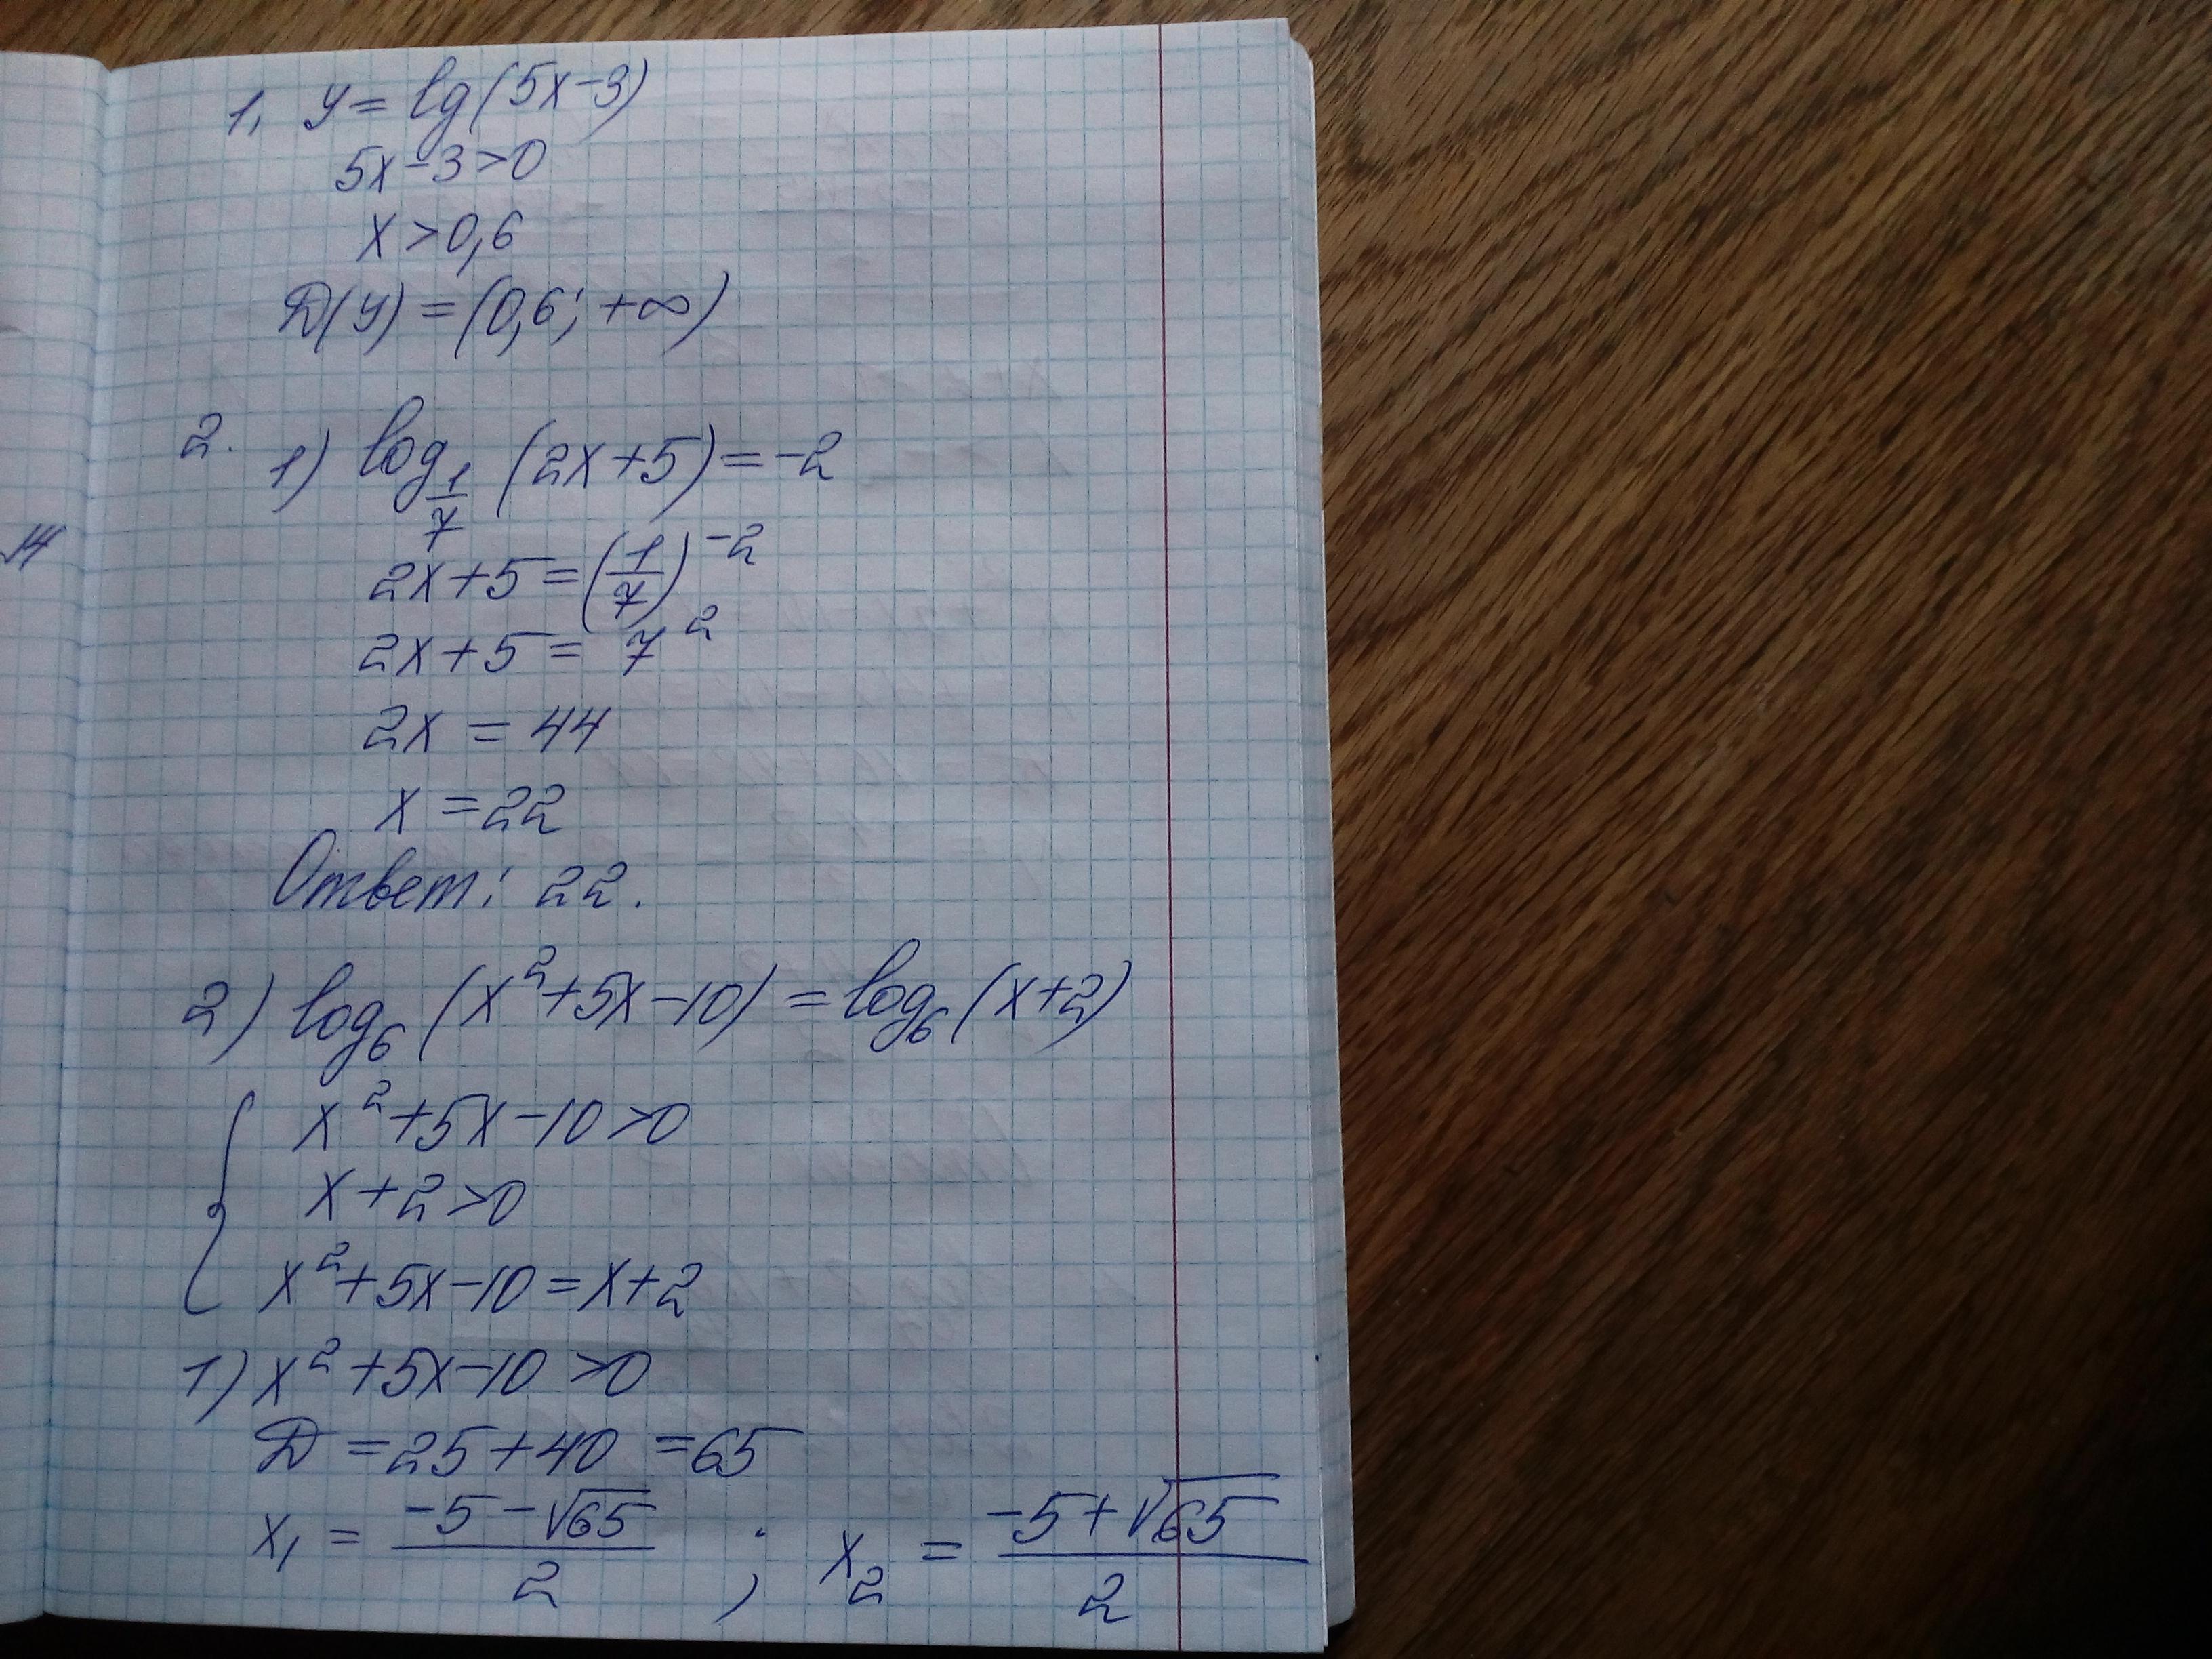 1. y = lg(5x-3)
5x-3>0
x>0,6
D(y) = (0,6; +∞)
2. 1) log_{1/7} (2x+5) = -2
2x+5 = (1/7)^{-2}
2x+5 = 7^2
2x = 44
x = 22
Ответ: 22.
2) log_6 (x^2+5x-10) = log_6 (x+2)
{ x^2+5x-10>0
x+2>0
x^2+5x-10 = x+2
1) x^2+5x-10 >0
D = 25+40 = 65
x_1 = (-5-√65)/2 ; x_2 = (-5+√65)/2